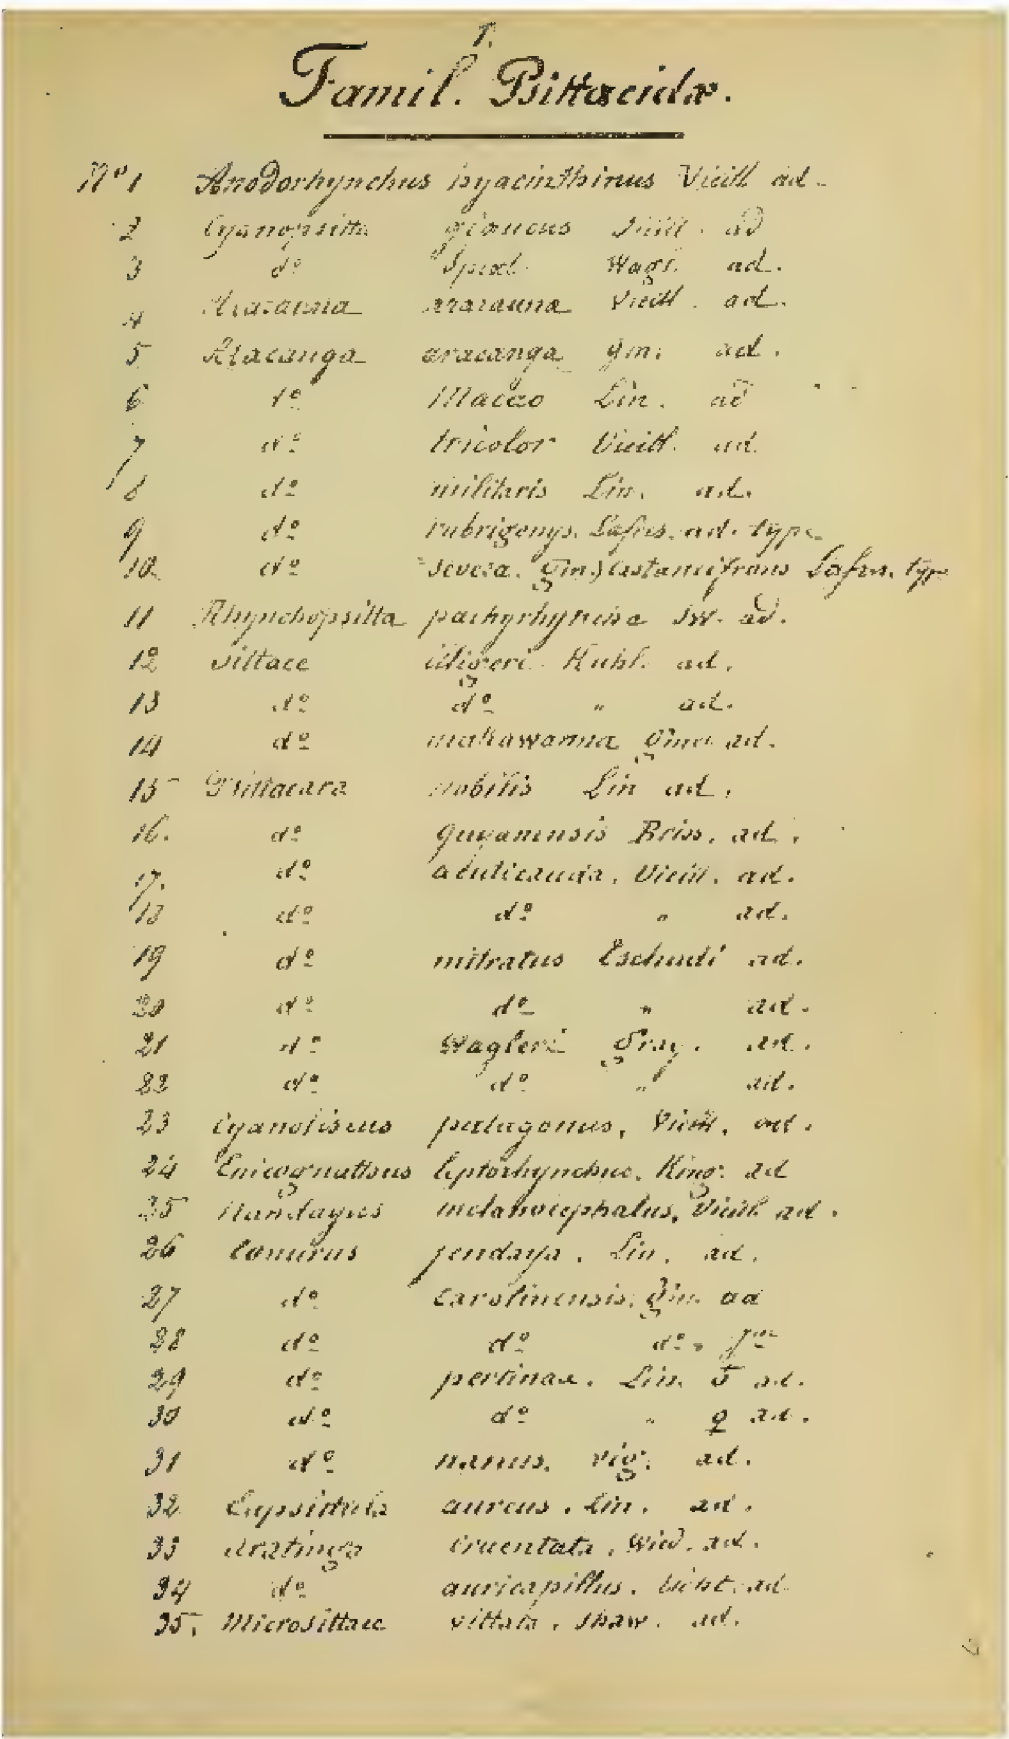 1.
Famil. Psittacidæ.
Nº 1 Anodorhynchus hyacinthinus Vieill ad.
2 Cyanopsitta glaucus Vieill. ad
3 dº Spixl. Wagl. ad.
4 Ararauna ararauna Vieill. ad.
5 Aracanga aracanga gm. ad.
6 dº Macao Lin. ad
7 dº tricolor Vieill. ad.
8 dº militaris Lin. ad.
9 dº rubrigenys. Lafres. ad. type
10 dº severa. gm.) castaneifrons Lafres. type
11 Rhynchopsitta pachyrhyncha Sw. ad.
12 Sittace illigeri Kuhl. ad.
13 dº dº " ad.
14 dº makawanna gmel ad.
15 Psittacara nobilis Lin ad.
16. dº guyanensis Briss. ad.
17. dº acuticauda. Vieill. ad.
18 dº dº " ad.
19 dº mitratus Tschudi ad.
20 dº dº " ad.
21 dº Wagleri Gray. ad.
22 dº dº " ad.
23 Cyanoliseus patagonus, Vieill. ad.
24 Enicognathus leptorhynchus. King. ad
25 Nandayus melanocephalus, Vieill. ad.
26 Conurus jendaya. Lin. ad.
27 dº carolinensis. gm. ad
28 dº dº dº. Jne
29 dº pertinax. Lin. ♂ ad.
30 dº dº " ♀ ad.
31 dº nanus. vig. ad.
32 Eupsittula aureus. Lin. ad.
33 Aratinga cruentata. Wied. ad.
34 dº auricapillus. Licht. ad
35. Microsittace vittata. Shaw. ad.